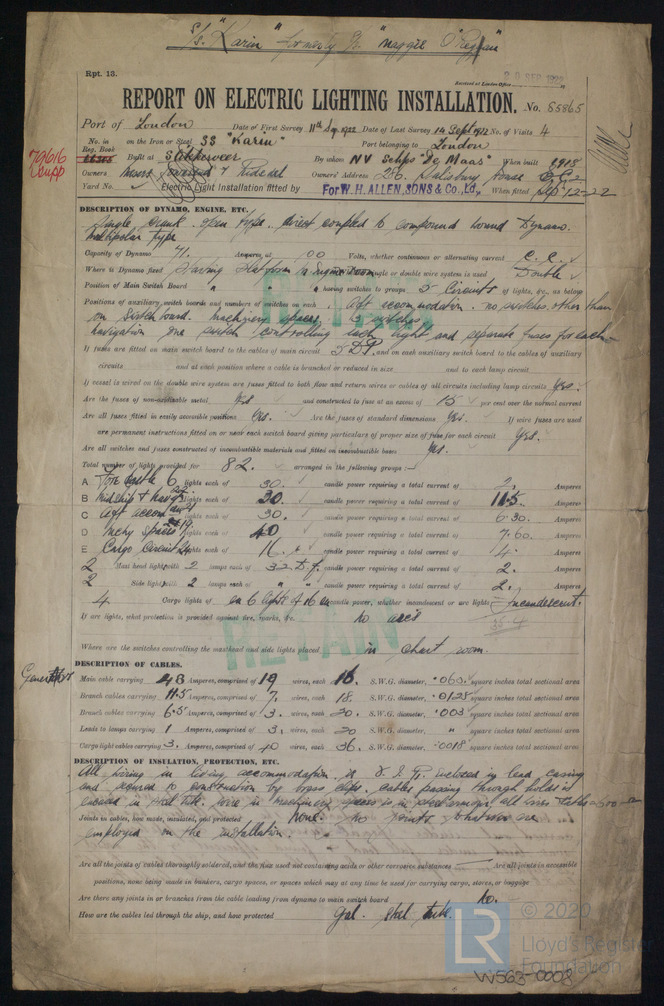 S/S. "Karin" formerly "Maggie O'Regan"
Rpt. 13.
Received at London Office 20 SEP 1922
REPORT ON ELECTRIC LIGHTING INSTALLATION. No. 85865
Port of London Date of First Survey 11th Sep. 1922 Date of Last Survey 14 Sept. No. of Visits 4
No. in Reg. Book on the Iron or Steel SS "Karin" Port belonging to London
79616 Supp
Built at Slikkerveer By whom NV Scheps "De Maas" When built 1918
Owners Owners' Address 26, Salisbury House E.C.2
Yard No. Electric Light Installation fitted by For W. H. ALLEN, SONS & Co., Ld., When fitted Sep 12-22
DESCRIPTION OF DYNAMO, ENGINE, ETC.
Single crank open type. direct coupled to compound wound Dynamo.
multipolar type
Capacity of Dynamo 71. Amperes at Volts, whether continuous or alternating current C.C.
Where is Dynamo fixed platform in Engine Room single or double wire system is used Double
Position of Main Switch Board " " having switches to groups 5 Circuits of lights, &c., as below
Positions of auxiliary switch boards and numbers of switches on each aft accommodation. no switches, other than
on Switchboard. machinery spaces. 3 switches.
navigation one switch controlling each light and separate fuses for each
If fuses are fitted on main switch board to the cables of main circuit 5 D.P. and on each auxiliary switch board to the cables of auxiliary
circuits and at each position where a cable is branched or reduced in size and to each lamp circuit
If vessel is wired on the double wire system are fuses fitted to both flow and return wires or cables of all circuits including lamp circuits Yes.
Are the fuses of non-oxidizable metal Yes and constructed to fuse at an excess of 15 per cent over the normal current
Are all fuses fitted in easily accessible positions Yes. Are the fuses of standard dimensions Yes. If wire fuses are used
are permanent instructions fitted on or near each switch board giving particulars of proper size of fuse for each circuit Yes.
Are all switches and fuses constructed of incombustible materials and fitted on incombustible bases Yes.
Total number of lights provided for 82. arranged in the following groups :—
A Fore castle 6 lights each of 30. candle power requiring a total current of 2. Amperes
B Midship & navig lights each of 30 candle power requiring a total current of 11.5. Amperes
C aft accom lights each of 30. candle power requiring a total current of 6.30. Amperes
D Mchy spaces 19 lights each of 40 candle power requiring a total current of 7.60. Amperes
E Cargo Circuit 24 lights each of 16. candle power requiring a total current of 4. Amperes
2 Mast head light with 2 lamps each of 32 candle power requiring a total current of 2. Amperes
2 Side light with 2 lamps each of " " candle power requiring a total current of 2. Amperes
4 Cargo lights of 6 lights of 16 candle power, whether incandescent or arc lights Incandescent.
If arc lights, what protection is provided against fire, sparks, &c. No arcs
Where are the switches controlling the masthead and side lights placed in chart room.
DESCRIPTION OF CABLES.
Main cable carrying 48 Amperes, comprised of 19 wires, each 18. S.W.G. diameter, ·060. square inches total sectional area
Branch cables carrying 11.5 Amperes, comprised of 7. wires, each 18. S.W.G. diameter, ·0125 square inches total sectional area
Branch cables carrying 6.5 Amperes, comprised of 3. wires, each 20. S.W.G. diameter, ·003 square inches total sectional area
Leads to lamps carrying 1 Amperes, comprised of 3. wires, each 20 S.W.G. diameter, " square inches total sectional area
Cargo light cables carrying 3. Amperes, comprised of 40 wires, each 36. S.W.G. diameter, ·0018 square inches total sectional area
DESCRIPTION OF INSULATION, PROTECTION, ETC.
All wiring in living accommodation is V. I. R. enclosed in lead casing
and secured to construction by brass clips. cables passing through holds is
encased in steel tube. wire in machinery spaces is in
Joints in cables, how made, insulated, and protected None. No joints whatever are
employed in the installation.
Are all the joints of cables thoroughly soldered, and the flux used not containing acids or other corrosive substances Are all joints in accessible
positions, none being made in bunkers, cargo spaces, or spaces which may at any time be used for carrying cargo, stores, or baggage
Are there any joints in or branches from the cable leading from dynamo to main switch board No.
How are the cables led through the ship, and how protected Gal. Steel tube.
RETAIN
RETAIN
LR
© 2020
Lloyd's Register
Foundation
W563-0008